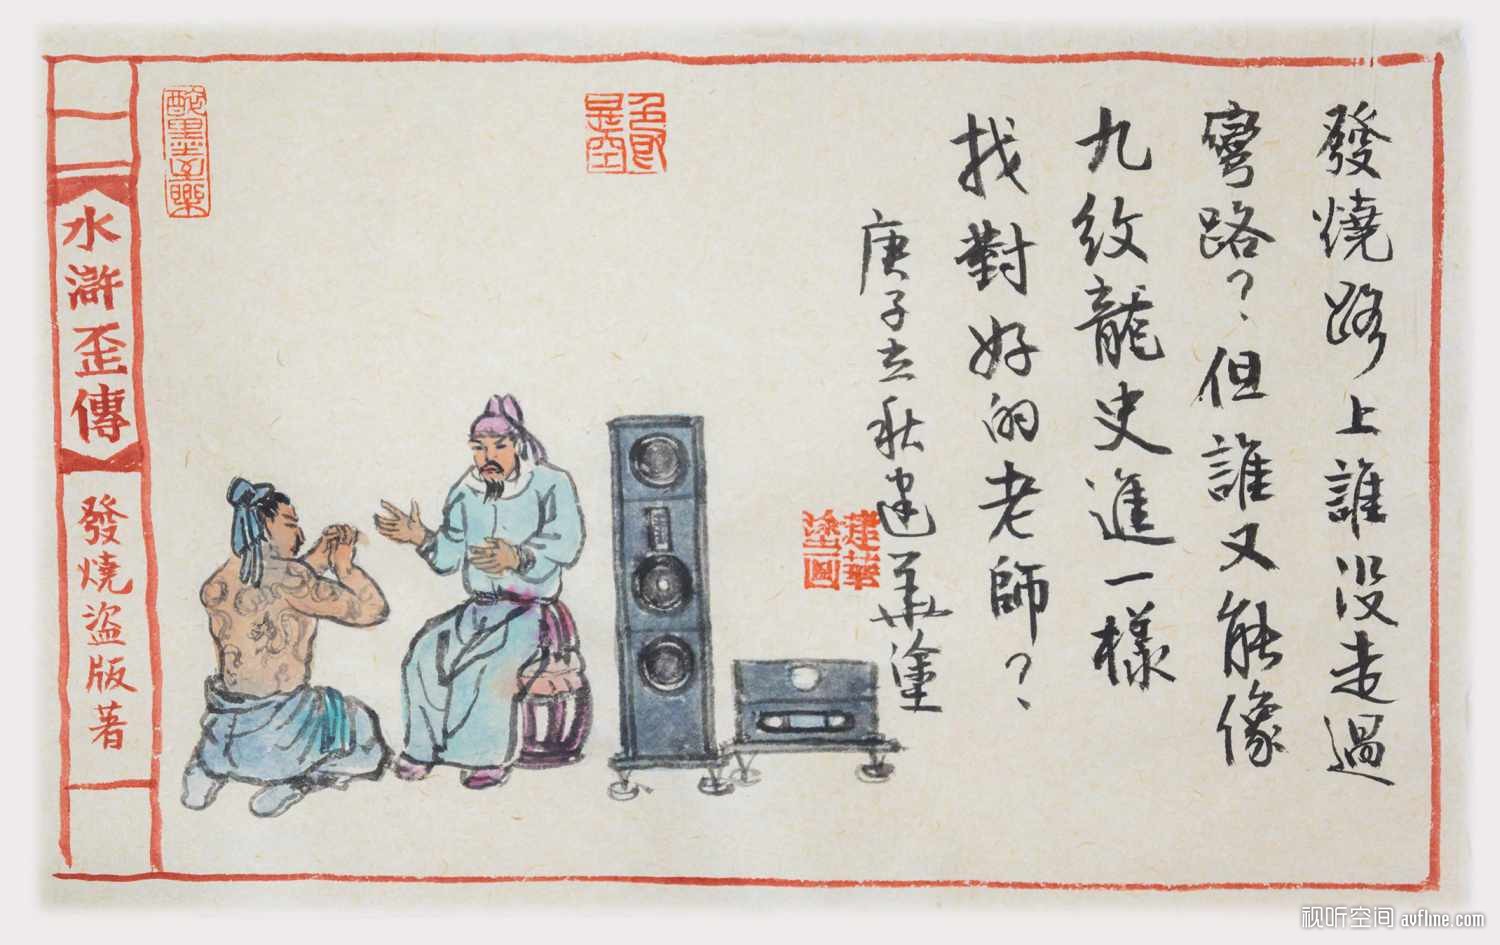 發燒路上誰没走過
彎路?但誰又能像
九紋龍史進一樣
找對好的老師?
庚子立秋建華塗
建華
塗圖
色即
是空
【水滸歪傳】
發燒盜版著
视听空间 avfline.com